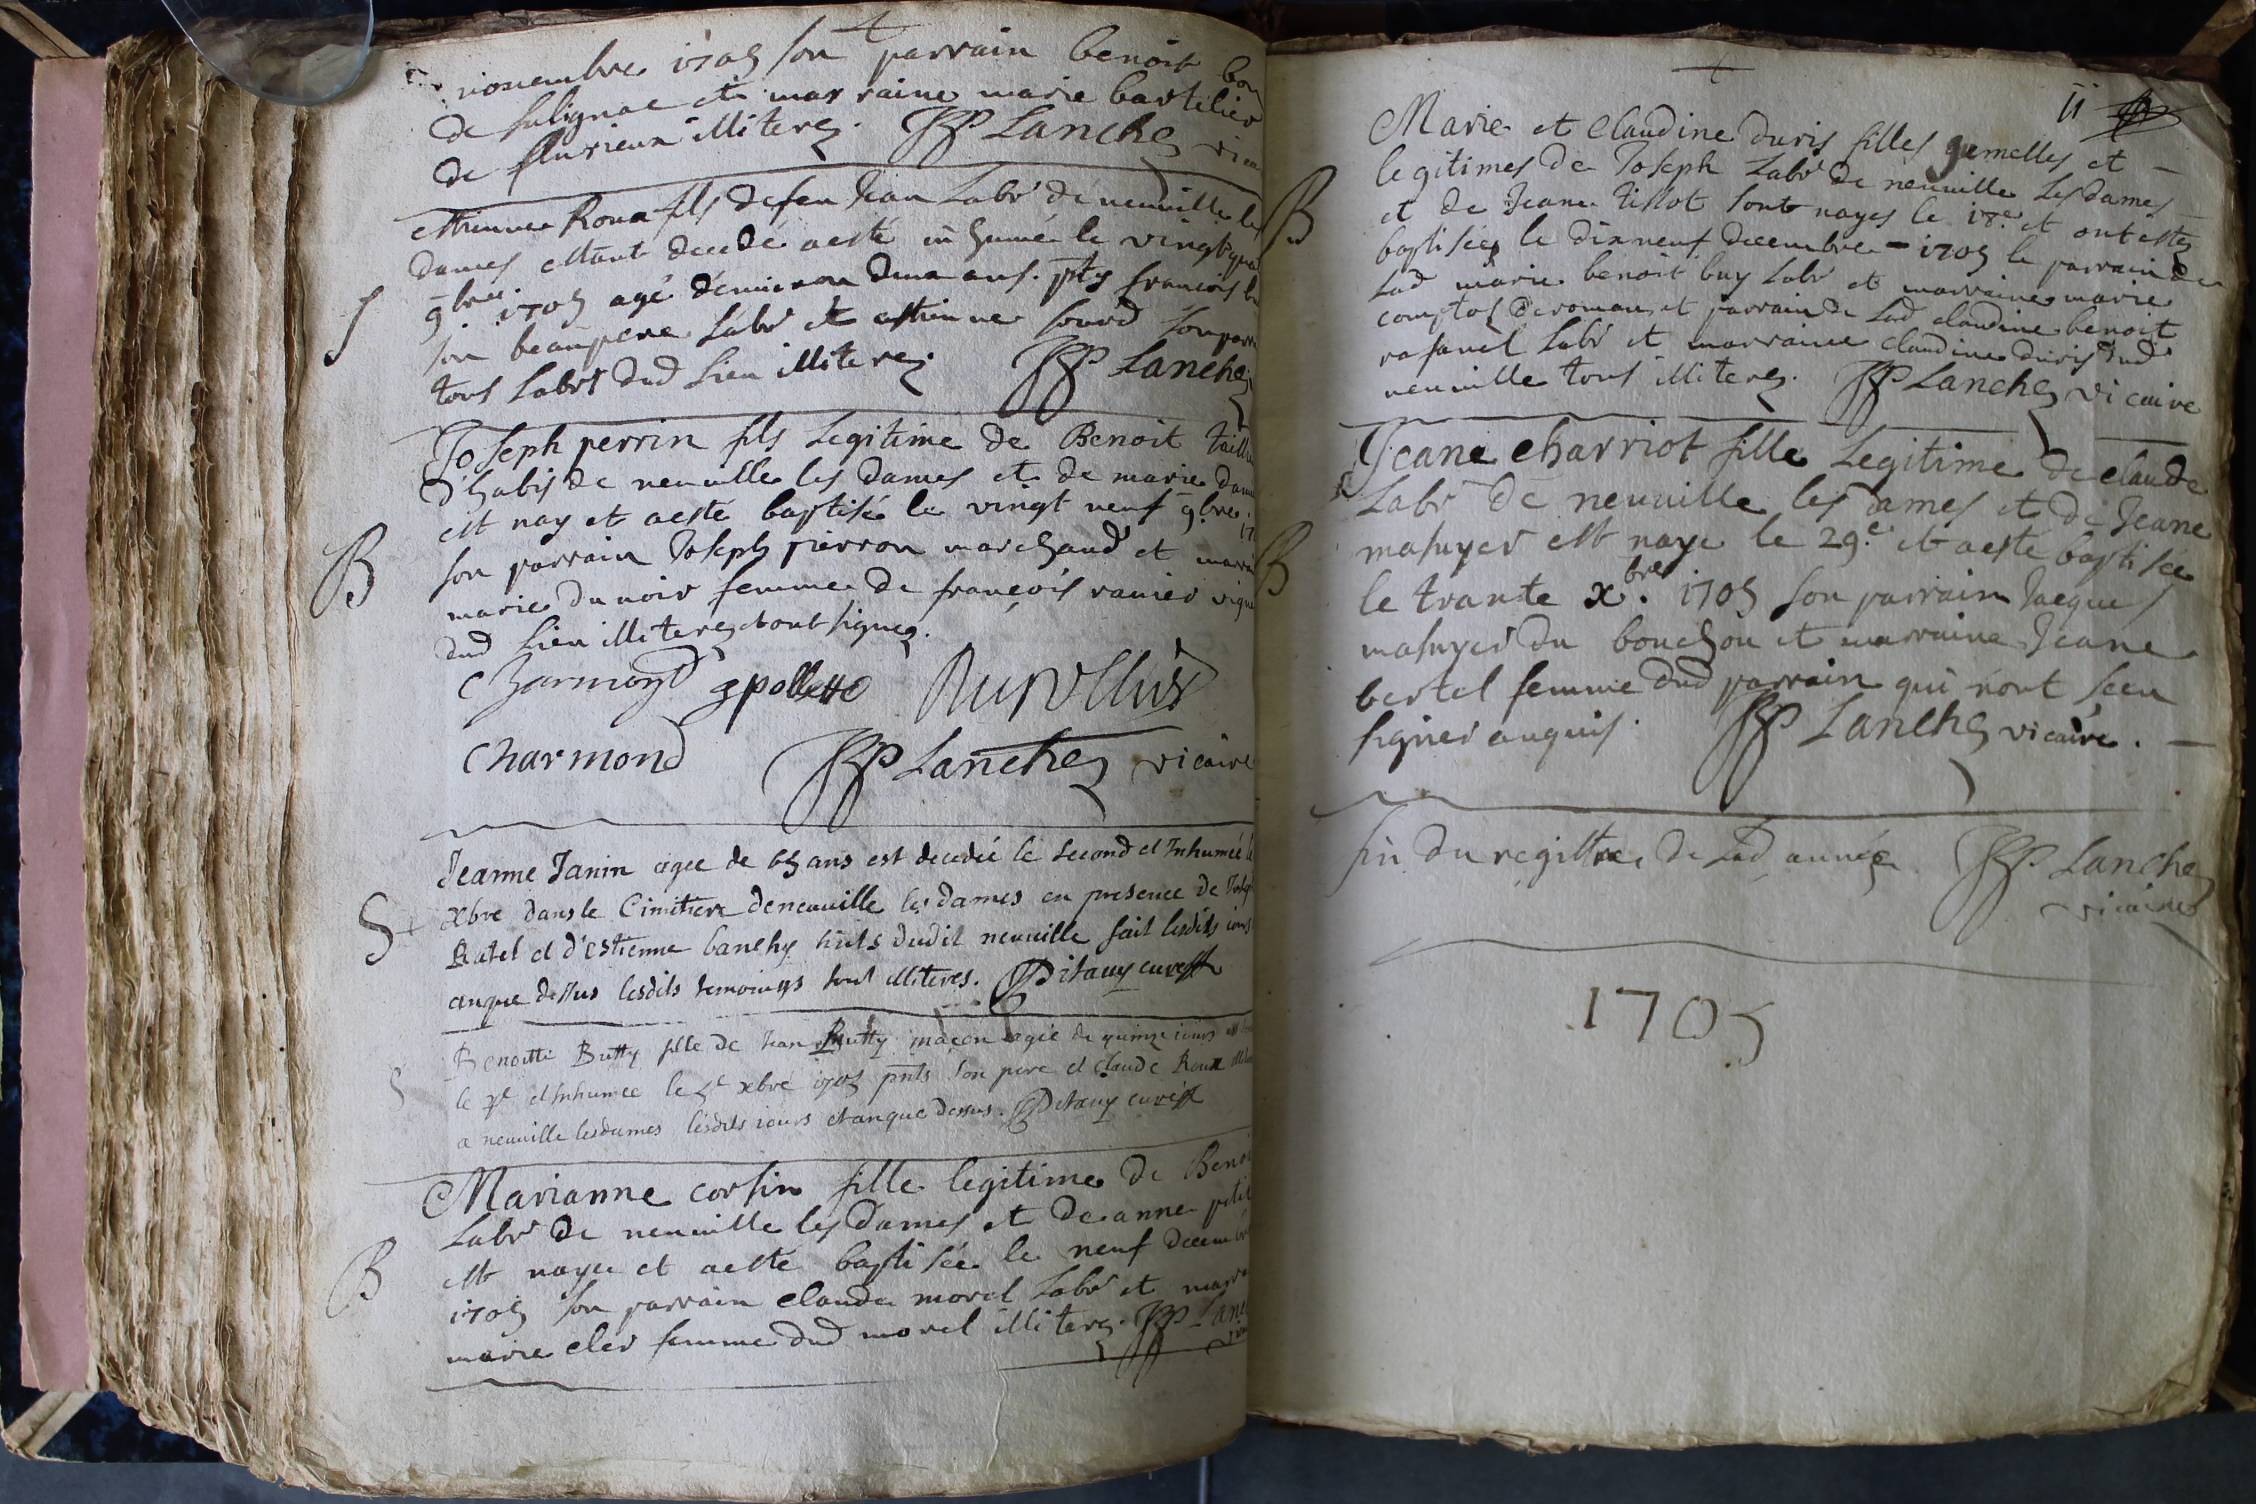 novembre 1705 son parrain benoit bon
de Salignac et marraine marie bartelier
de flurieux illiterez. JJP Lanchez vica
estienne Roux fils de feu Jean Labr de neuville les
dames estant decedé a esté inhumé le vingt qua
9bre 1705 agé d'environ deux ans. pnts francois
son beaupere labr et estienne sourd son parr
tous labrs dud lieu illiterez. JJP Lanchez
S
Joseph perrin fils legitime de Benoit taille
d'habis de neuville les dames et de marie
est nay et a esté baptisé le vingt neuf 9bre. 17
son parrain Joseph pierron marchand et marrai
marie du noir femme de françois ranier vign
dud lieu illiterez et ont signez.
B
Charmond gpollette
Charmond JJP Lanchez vicaire
Jeanne Janin agee de 65 ans est decedée le second et Inhumée le
xbre dans le Cimitiere de neuville les dames en presence de
Ratel et d'estienne banchy dudit neuville fait lesdits iours
an que dessus lesdits temoings sont illiteres. Ditauy curé
S
Benoitte Butty fille de Jean Butty maçon agée de quinze iours est
le et Inhumée le xbre 1705 pnts son pere et Claude Roux
a neuville les dames lesdits iours et an que dessus. Ditauy curé
S
Marianne corsin fille legitime de Benoi
Labr de neuville les dames et de anne petit
est nayee et a esté baptisée le neuf decembre
1705 son parrain claude morel Labr et marra
marie cler femme dud morel illiterez. JJP Lanc
B
11
Marie et Claudine duris filles gemelles et
legitimes de Joseph Labr de neuville les dames
et de Jeane tissot sont nayes le 18e et ont estez
baptisées le dix neuf decembre 1705 le parrain de
lad marie benoit buy labr et marraine marie
comptoz de romans et parrain de lad claudine benoit
rafanel labr et marraine claudine duris dud
neuville tous illiterez. JJP Lanchez vicaire
B
Jeane charriot fille Legitime de claude
Labr de neuville les dames et de Jeane
masuyer est naye le 29e et a esté baptisée
le trante xbre. 1705 son parrain Jacques
masuyer du bouchou et marraine Jeane
bertel femme dud parrain qui n'ont sceu
signer enquis. JJP Lanchez vicaire.
B
fin du registre de lad année. JJP Lanchez
vicaire
1705